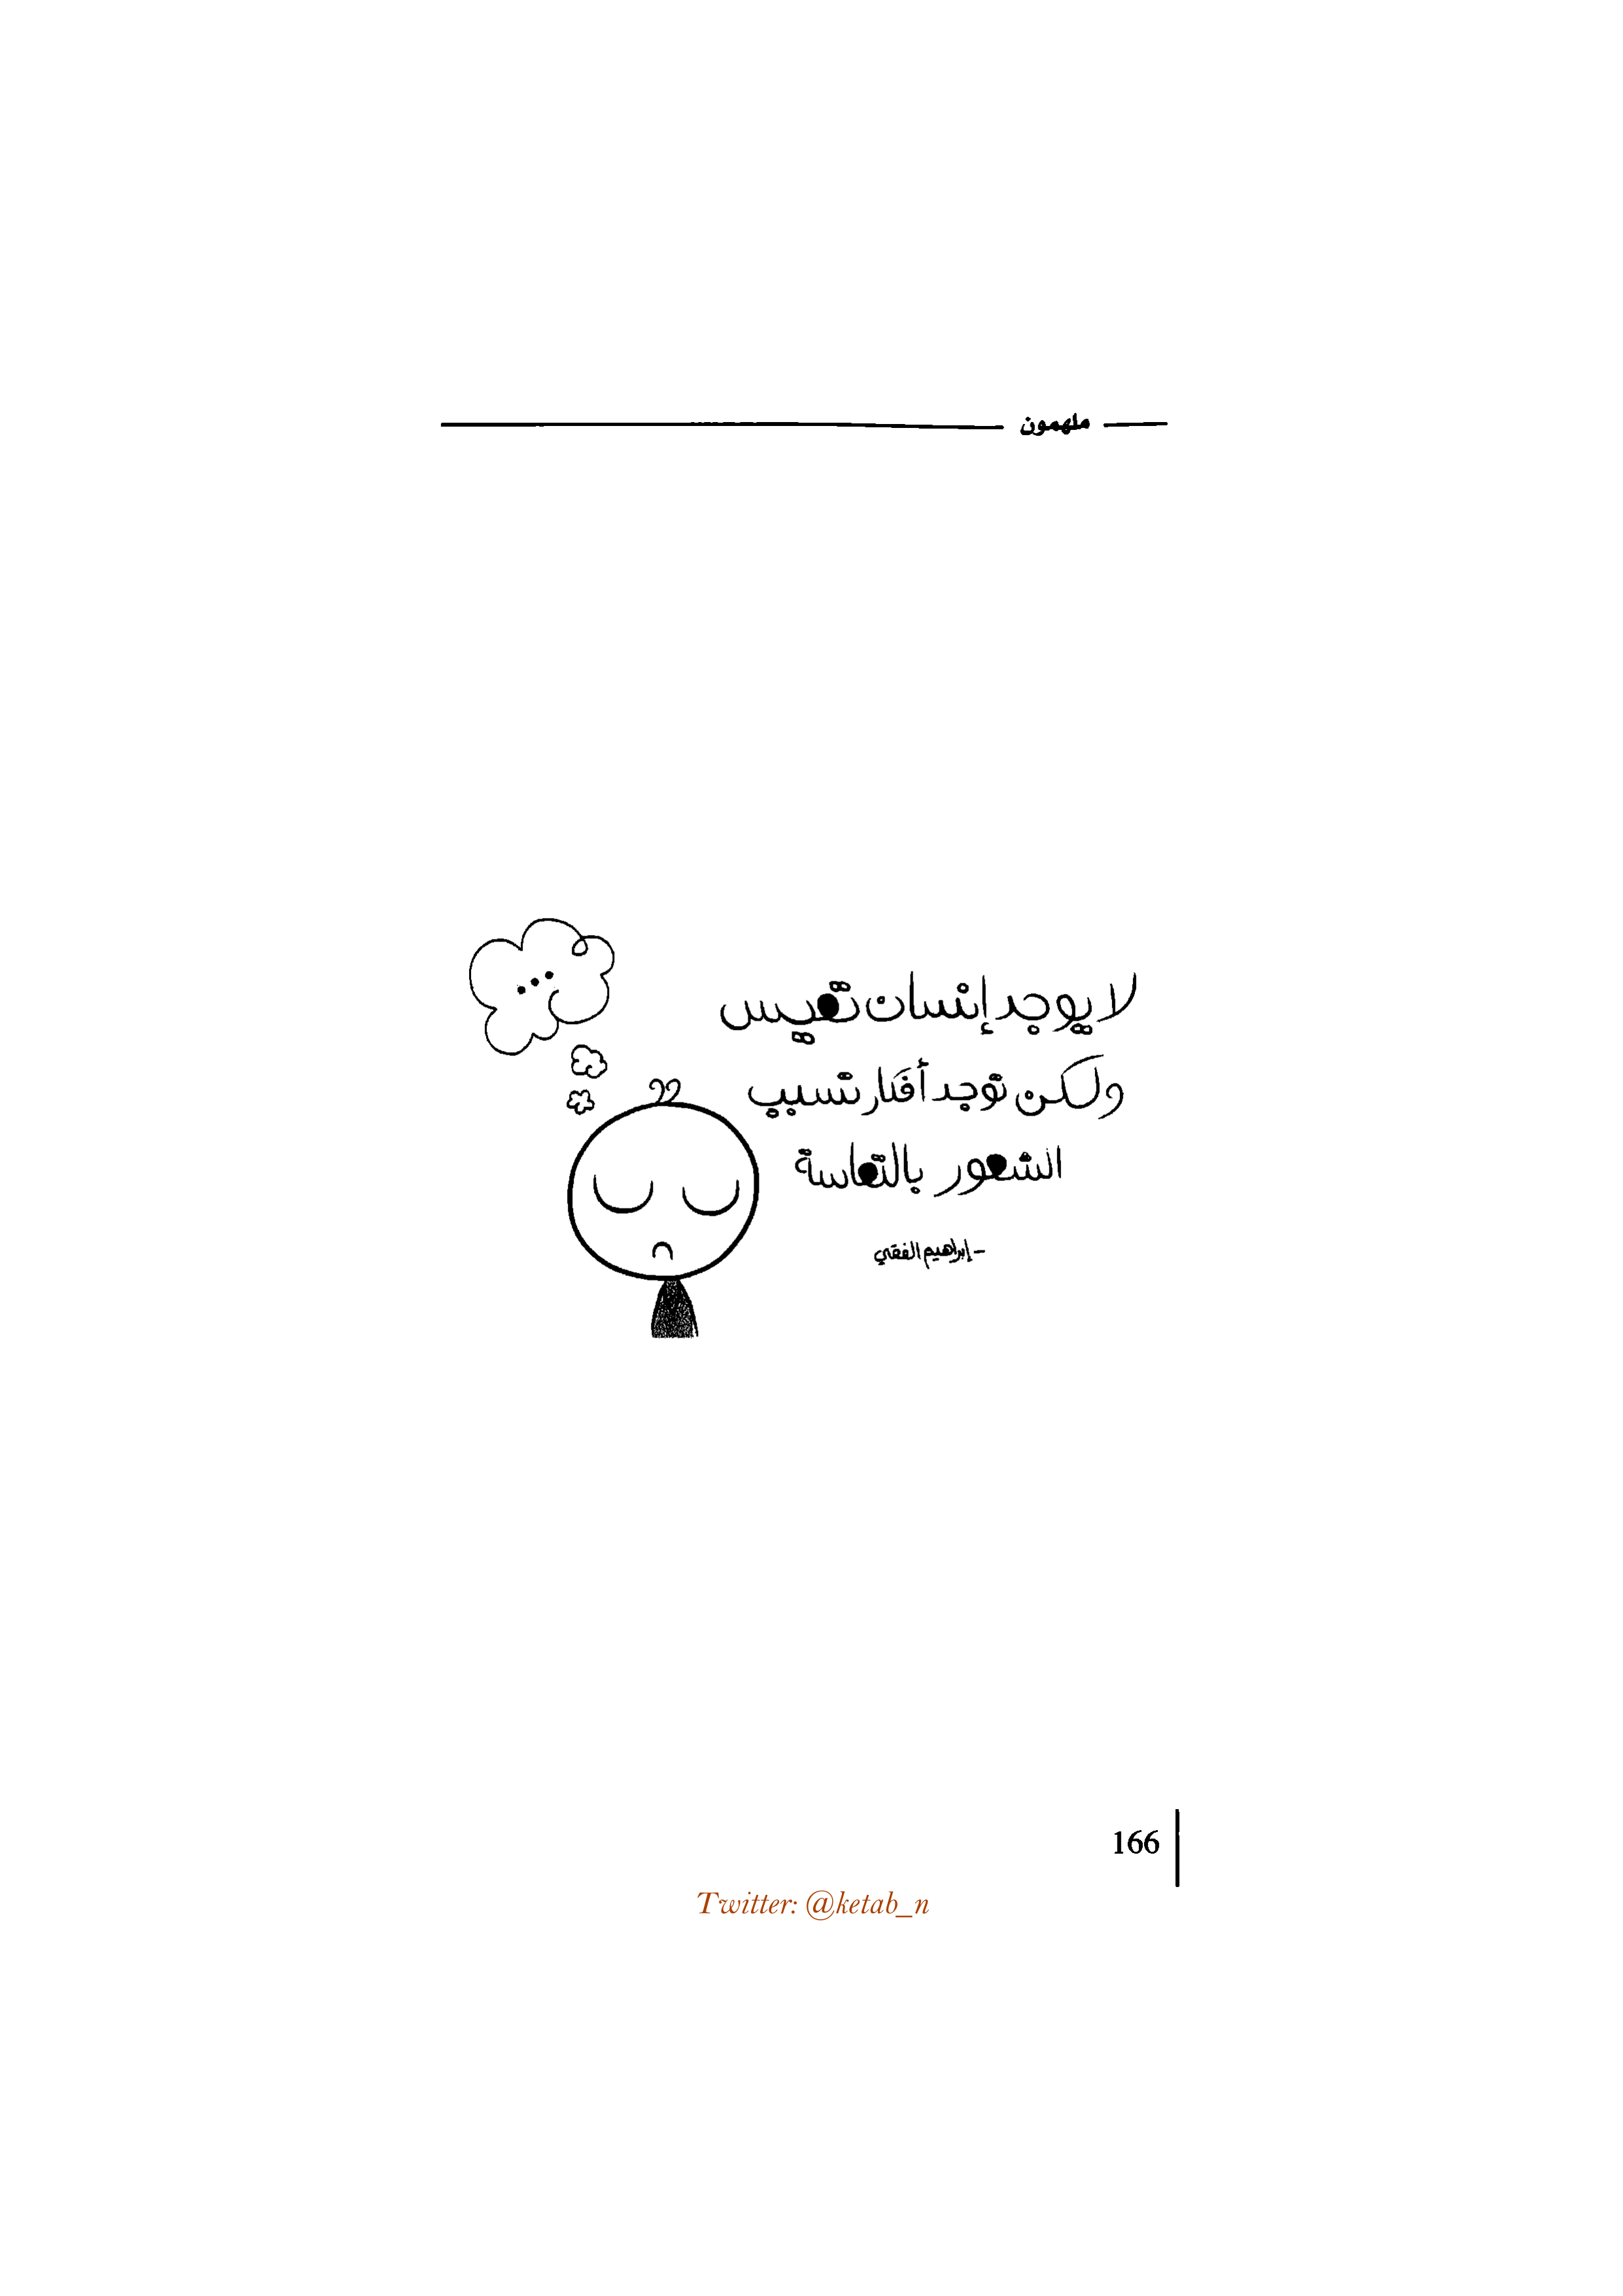 ملهمون
لا يوجد إنسان تعيس
ولكن توجد أفكار تسبب
الشعور بالتعاسة
- إبراهيم الفقي
166
Twitter: @ketab_n